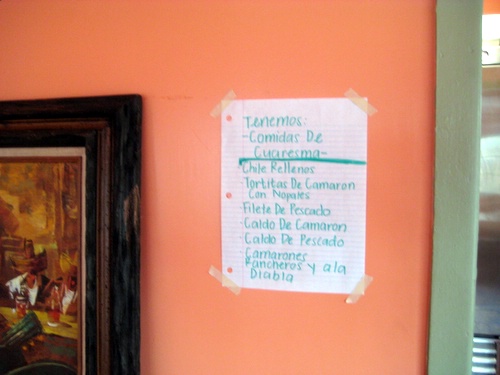 Tenemos:
-Comidas De
Cuaresma-
Chile Rellenos
Tortitas De Camaron
Con Nopales
Filete De Pescado
Caldo De Camaron
Caldo De Pescado
Camarones
Rancheros y ala
Diabla